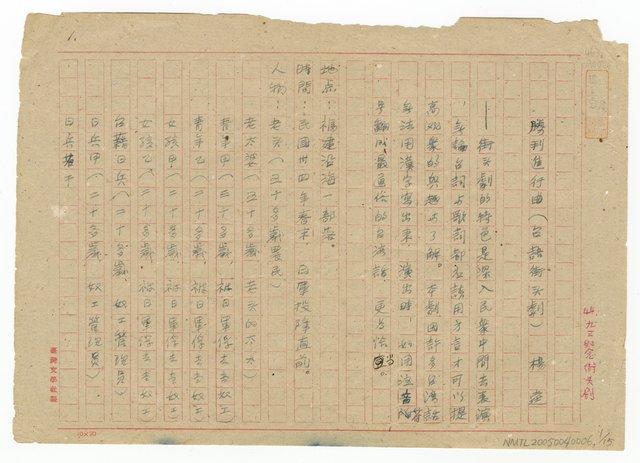 勝利進行曲(台語街頭劇) 楊逵
──街頭劇的特色是深入民眾中間去表演
,無論台詞與歌詞都應該用方言才可以提
高观众的興趣与了解。本劇因許多台灣話
無法用漢字寫出來,演出時,如用注音符号
翻成最通俗的台灣話,更為法當。
地点:福建沿海一部落。
時間:民國卅四年春末,日軍投降直前。
人物:老头(六十多歲農民)
老太婆(五十多歲 老头的太太)
青年甲(二十多歲,被日軍俘去去奴工)
青年乙(二十多歲,被日軍俘去去奴工)
女孩甲(二十多歲,被日軍俘去去奴工)
女孩乙(二十多歲,被日軍俘去去奴工)
台籍日兵(二十多歲,奴工管理員)
日兵甲(二十多歲,奴工管理員)
日兵若干
1.
44.九三紀念街头劇
臺灣文學社製
10×20
NMTL20050040006,1/15